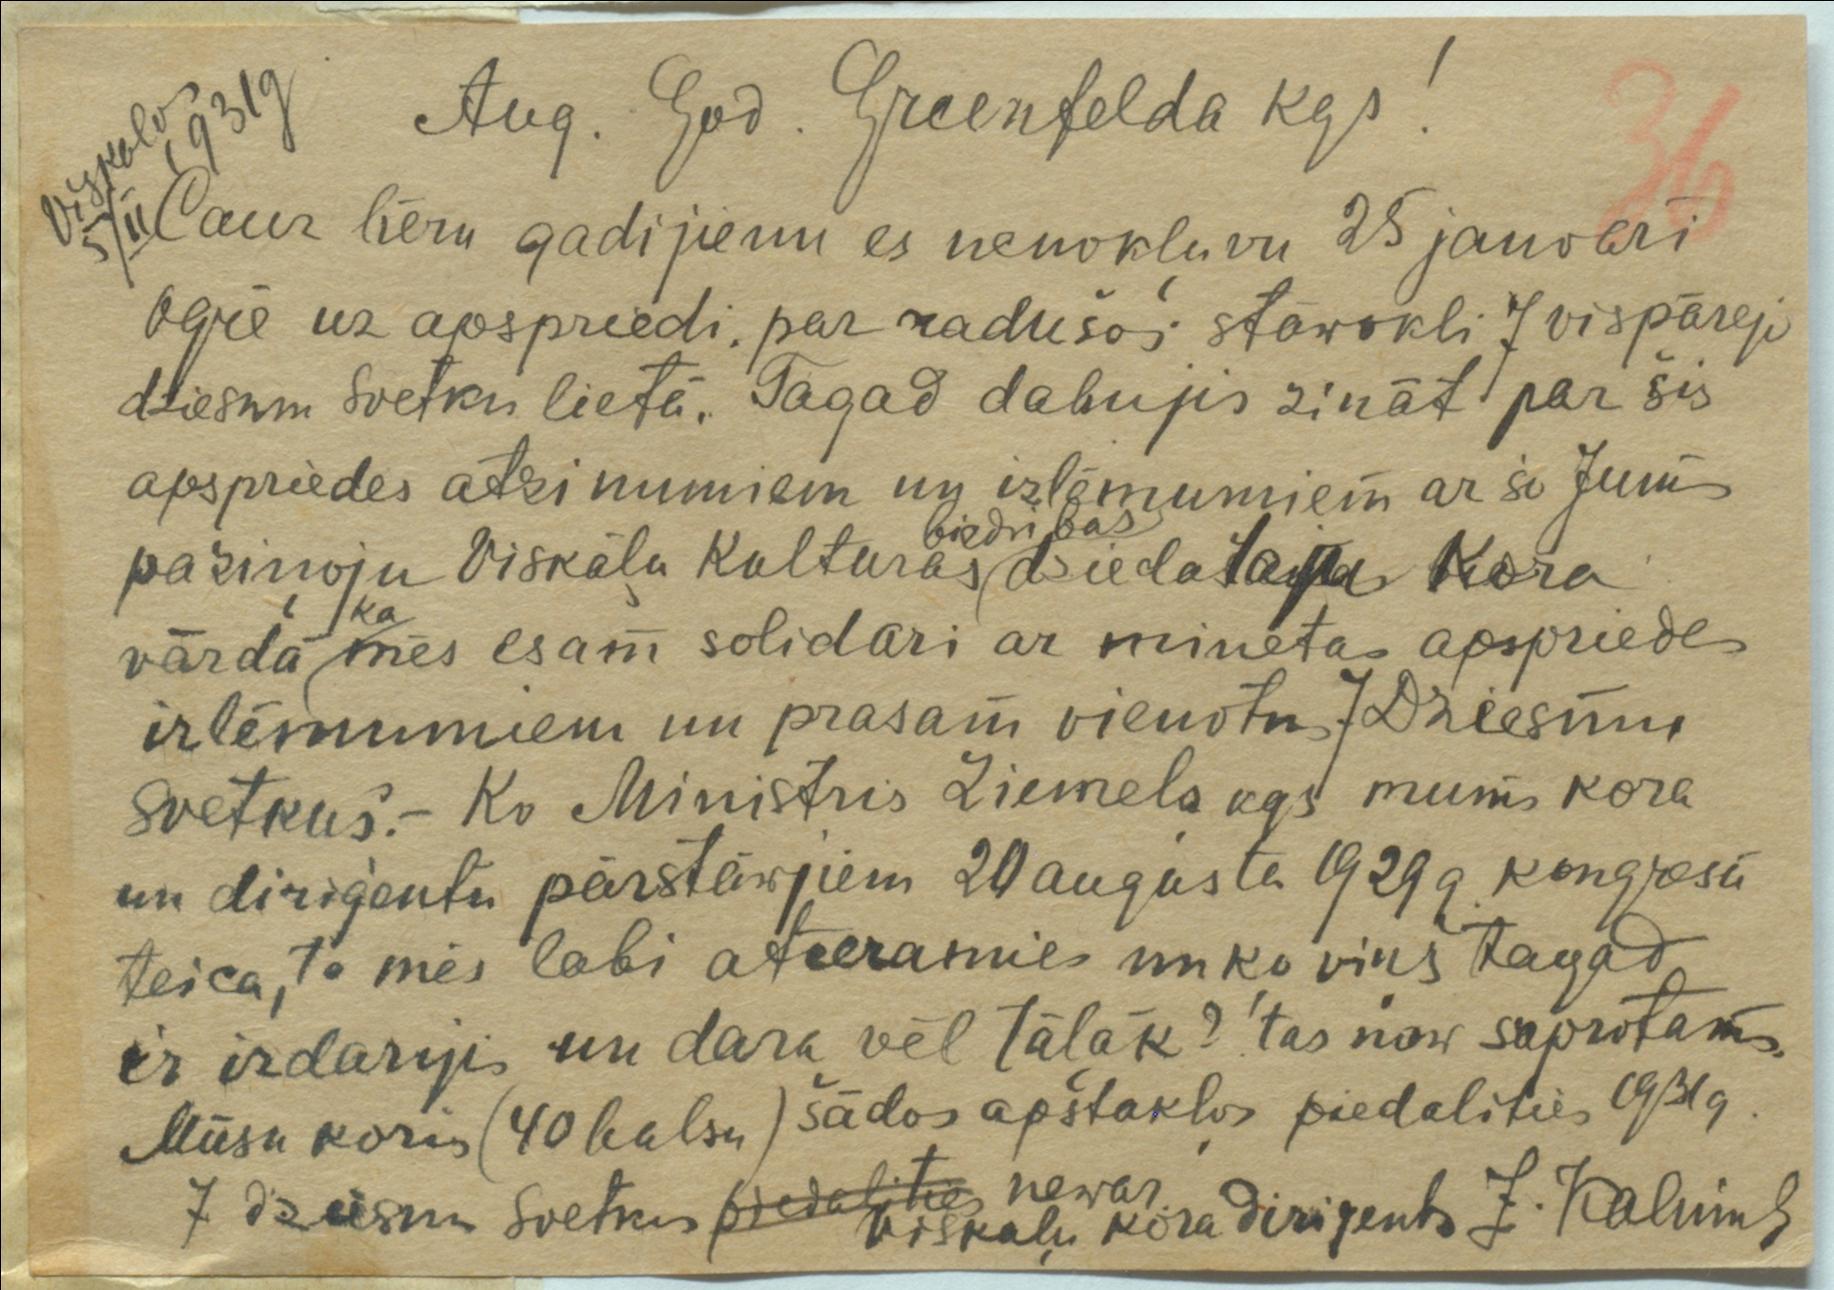 Viskalos
5/II 1931g
Aug. God. Greenfelda kgs!
36
Caur ķēru gadijienu es nenokļuvu 25 janvāri
Ogrē uz apspriedi. par radušos stāwokli 7 vispārejo
dziesmu svetku lietā. Tagad dabujis zināt par šis
apspriedes atzinumiem un izlēmumiem ar šo Jums
paziņoju Viskāļu Kulturas biedribas dziedataju Kora
vārdā ka mēs esam solidari ar minetas apspriedes
izlēmumiem un prasam vienotus 7 Dziesmu
svetkus.- Ko Ministris Ziemeļa kgs mums kora
un diriģentu pārstāwjiem 20 augusta 1929 g. kongresā
teica, to mēs labi atceramies un ko viņš tagad
ir izdarijis un dara vēl tālāk? tas naw saprotams.
Mūsu koris (40 balsu) šādos apstakļos piedalities 1931g.
7 dziesmu svetkus piedalities newar
Viskaļu kora dirigents J. Kalniņš